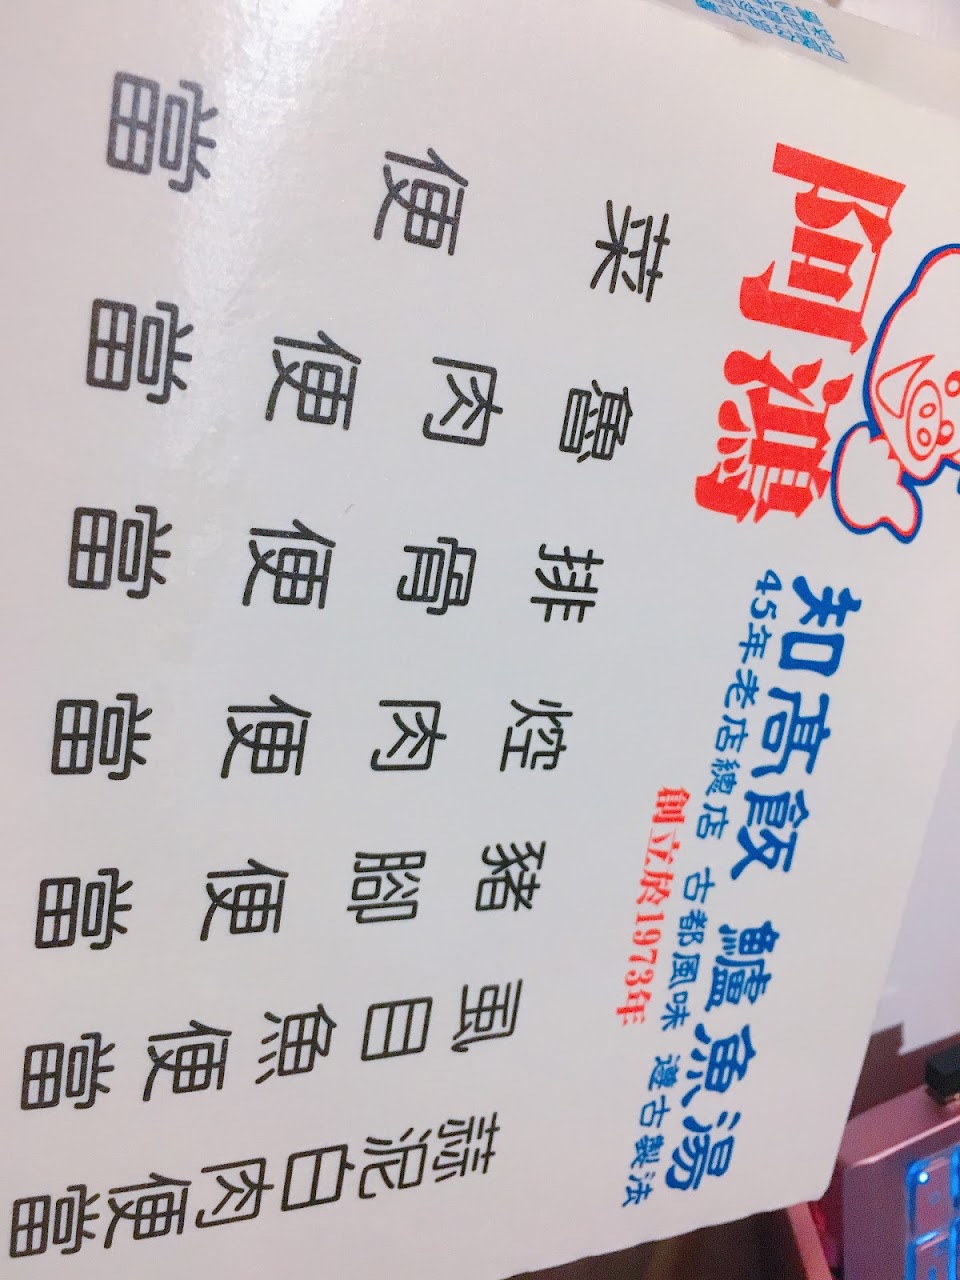 阿鴻 知高飯 鱸魚湯
45年老店總店 古都風味 遵古製法
創立於1973年
菜便當
魯肉便當
排骨便當
焢肉便當
豬腳便當
虱目魚便當
蒜泥白肉便當